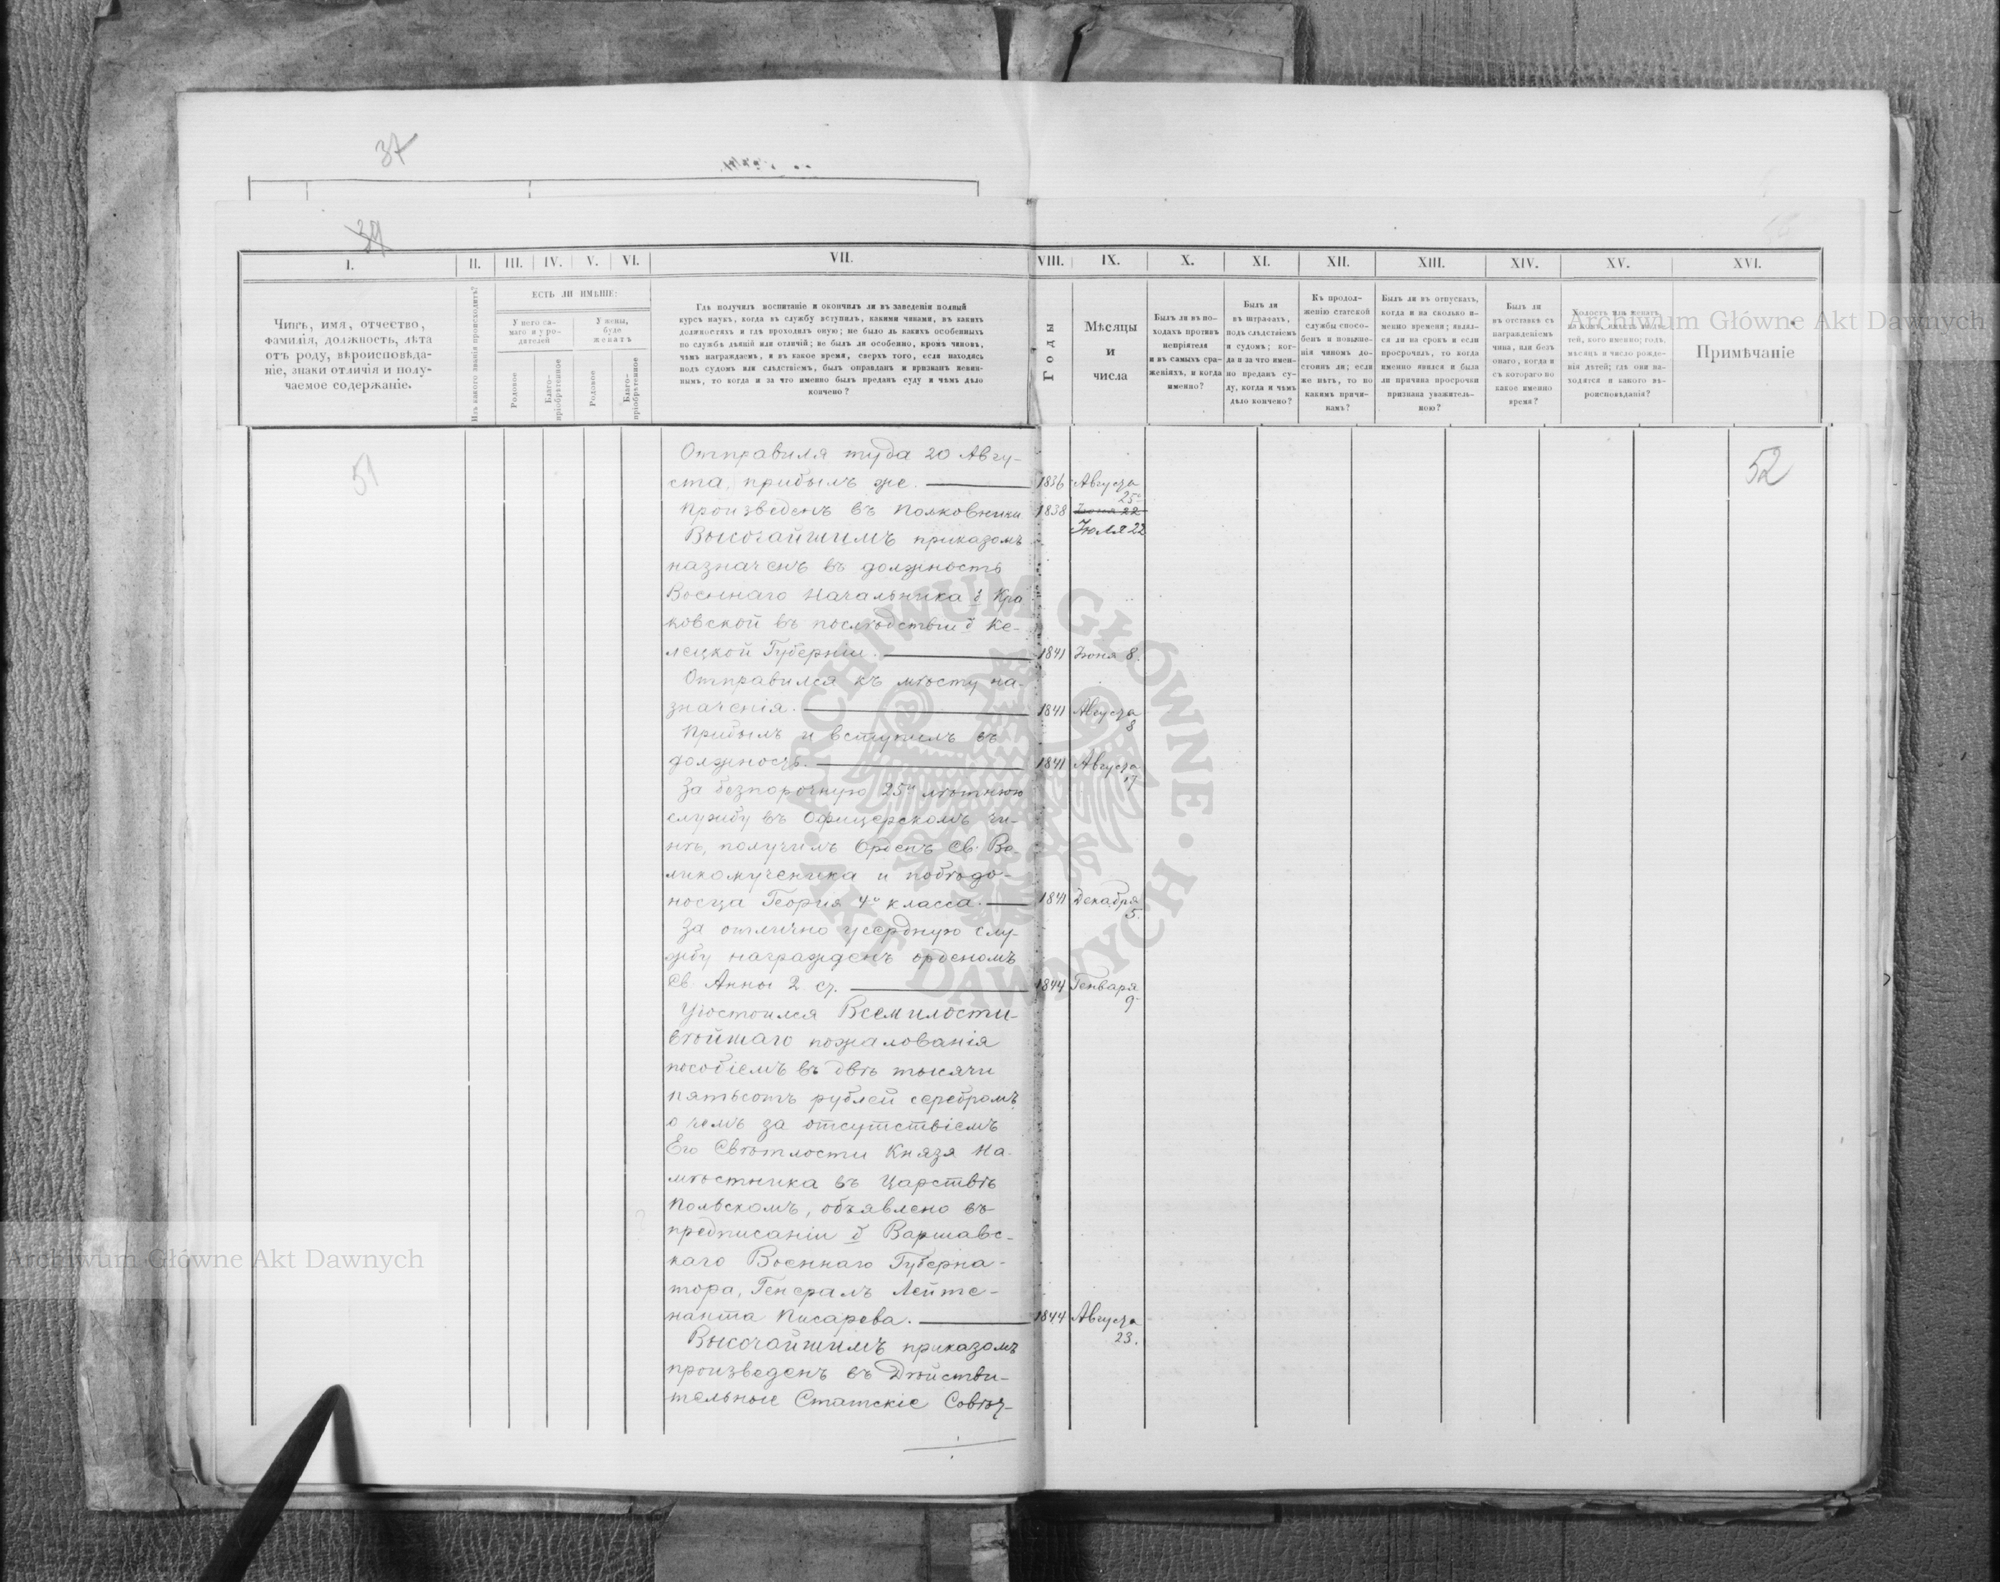 37
39
I. II. III. IV. V. VI. VII. VIII. IX. X. XI. XII. XIII. XIV. XV. XVI.
Чинъ, имя, отчество,
фамилія, должность, лѣта
отъ роду, вѣроисповѣда-
ніе, знаки отличія и полу-
чаемое содержаніе.
Изъ какого званія происходитъ?
ЕСТЬ ЛИ ИМѢНІЕ:
У него са-
маго и у ро-
дителей
У жены,
буде
женатъ
Родовое
Благо-
пріобрѣтенное
Родовое
Благо-
пріобрѣтенное
Гдѣ получилъ воспитаніе и окончилъ ли въ заведеніи полный
курсъ наукъ, когда въ службу вступилъ, какими чинами, въ какихъ
должностяхъ и гдѣ проходилъ оную; не было ль какихъ особенныхъ
по службѣ дѣяній или отличій; не былъ ли особенно, кромѣ чиновъ,
чѣмъ награждаемъ, и въ какое время, сверхъ того, если находясь
подъ судомъ или слѣдствіемъ, былъ оправданъ и признанъ невин-
нымъ, то когда и за что именно былъ преданъ суду и чѣмъ дѣло
кончено?
Годы
Мѣсяцы
и
числа
Былъ ли въ по-
ходахъ противъ
непріятеля
и въ самыхъ сра-
женіяхъ, и когда
именно?
Былъ ли
въ штрафахъ,
подъ слѣдствіемъ
и судомъ; ког-
да и за что имен-
но преданъ су-
ду, когда и чѣмъ
дѣло кончено?
Къ продол-
женію статской
службы спосо-
бенъ и повыше-
нія чиномъ до-
стоинъ ли; если
же нѣтъ, то по
какимъ причи-
намъ?
Былъ ли въ отпускахъ,
когда и на сколько и-
менно времени; являл-
ся ли на срокъ и если
просрочилъ, то когда
именно явился и была
ли причина просрочки
признана уважитель-
ною?
Былъ ли
въ отставкѣ съ
награжденіемъ
чина, или безъ
онаго, когда и
съ котораго по
какое именно
время?
Холостъ или женатъ,
на комъ, имѣетъ ли дѣ-
тей, кого именно; годъ,
мѣсяцъ и число рожде-
нія дѣтей; гдѣ они на-
ходятся и какого вѣ-
роисповѣданія?
Примѣчаніе
51
52
Отправился туда 20 Авгу-
ста, прибылъ же. 1836 Августа
25
Произведенъ въ Полковники 1838 Іюня 22
Іюля 22
Высочайшимъ приказомъ
назначенъ въ должность
Военнаго Начальника б. Кра
ковской въ послѣдствіи б Ке-
лецкой Губерніи. 1841 Іюня 8.
Отправился къ мѣсту на-
значенія. 1841 Августа
8
Прибылъ и вступилъ въ
должность. 1841 Августа
17
За безпорочную 25и лѣтнюю
службу въ Офицерскомъ чи-
нѣ, получилъ Орденъ Св. Ве-
ликомученика и побѣдо-
носца Георгія 4го класса. 1841 Декабря
5.
За отлично усердную слу-
жбу награжденъ орденомъ
Св. Анны 2 ст. 1844 Генваря
9
Удостоился Всемилости-
вѣйшаго пожалованія
пособіемъ въ двѣ тысячи
пятьсотъ рублей серебромъ,
о чемъ за отсутствіемъ
Его Свѣтлости Князя На-
мѣстника въ Царствѣ
Польскомъ, объявлено въ
предписаніи б Варшавс-
каго Военнаго Губерна-
тора, Генералъ Лейте-
нанта Писарева. 1844 Августа
23.
Высочайшимъ приказомъ
произведенъ въ Дѣйстви-
тельные Статскіе Совѣт-
Archiwum Główne Akt Dawnych
Archiwum Główne Akt Dawnych
ARCHIWUM GŁÓWNE · AKT DAWNYCH ·